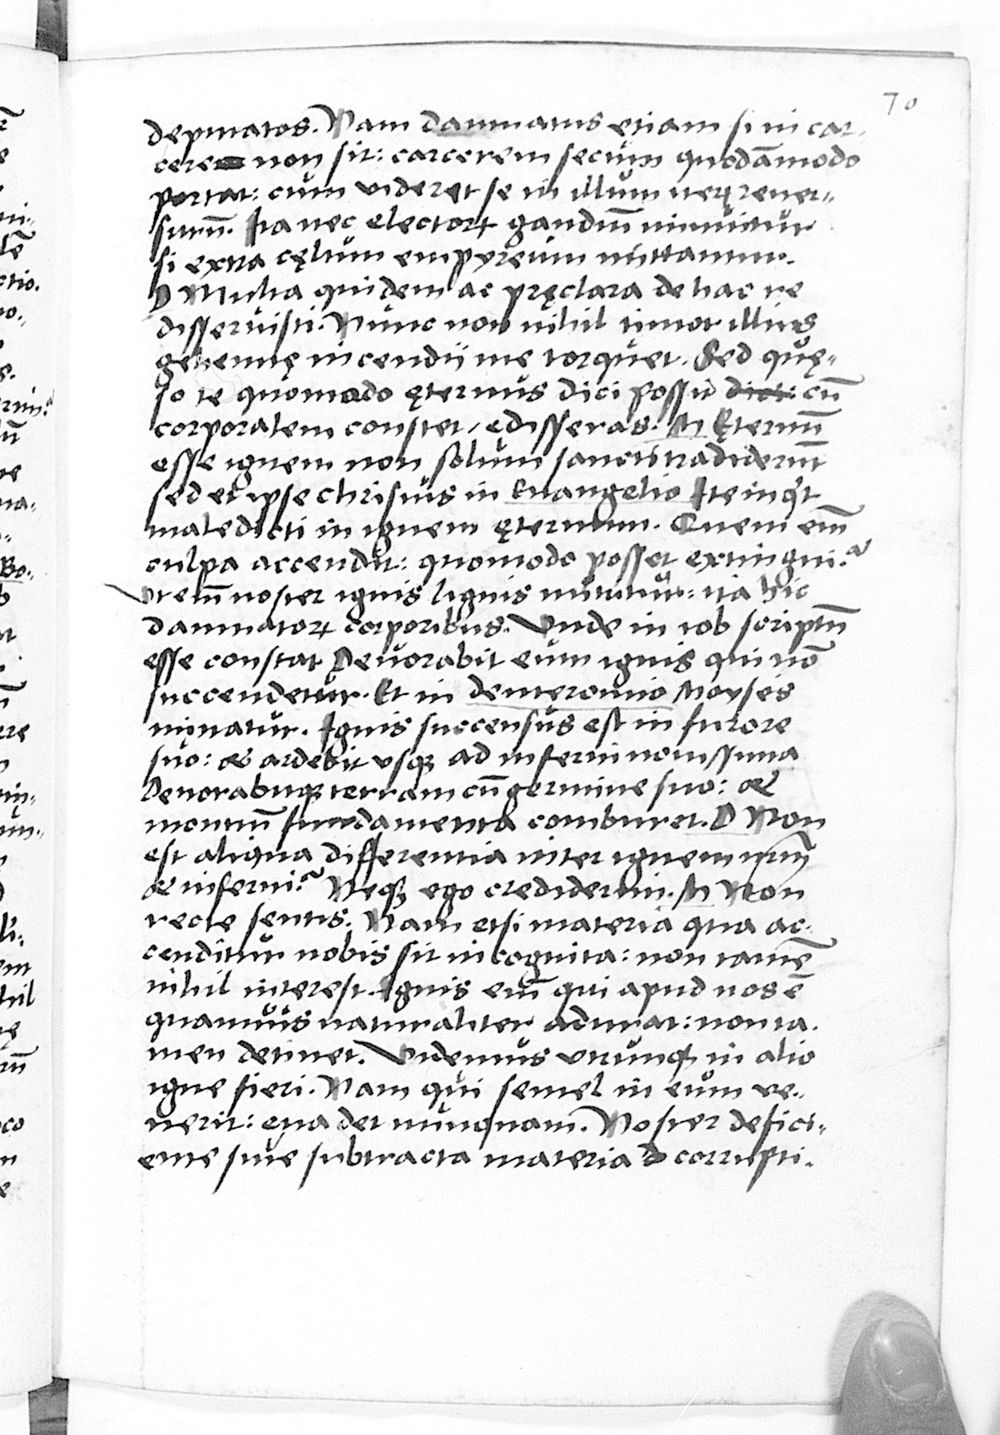 70
deputatos. Nam damnatus etiam si in car-
cere non sit: carcerem secum quodāmodo
portat: cum videret se in illum iterū rever-
surū. Ita nec electorꝝ gaudiū minuitur
si extra cęlum empyreum mittantur.
D Multa quidem ac pręclara de hac re
disseruisti. Nunc non nihil timor illius
gehennę incendii me torquet. Sed quę-
so te quomodo ęternus dici possit dici: cū
corporalem constet, edisseras. M Ęternū
esse ignem non solum sancti tradiderūt
sed et ipse christus in Euangelio Ite inq̇t
maledicti in ignem ęternum. Quem em̄
culpa accendit: quomodo posset extingui?
Vt em̄ noster ignis lignis nutritur: ita hic
damnatorꝝ corporibus. Vnde in iob scriptū
esse constat Deuorabit eum ignis qui nō
succendetur. Et in deuteronomio Moyses
minatur. Ignis succensus est in furore
suo: & ardebit vsqꝫ ad inferni nouissima
Deuorabitqꝫ terram cū germine suo: &
montiū fundamenta comburet. D Non
est aliqua differentia inter ignem nrm̄
& inferni? Neqꝫ ego crediderim. M Non
recte sentis. Nam etsi materia qua ac-
cenditur nobis sit incognita: non tamē
nihil interest. Ignis em̄ qui apud nos ē
quamuis naturaliter adurat: non ta-
men detinet. Videmus vtrunqꝫ in alio
igne fieri. Nam qui semel in eum ve-
nerit: euadet nunquam. Noster defici-
ente siue subtracta materia corrupti-